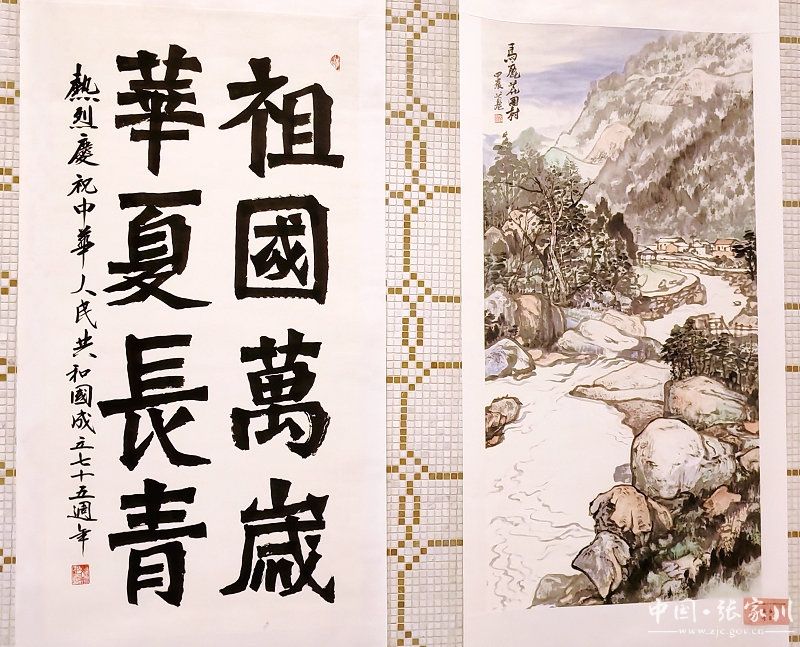 祖國萬歲
華夏長青
熱烈慶祝中華人民共和國成立七十五週年
馬鹿花園村
中国·张家川
www.zjc.gov.cn